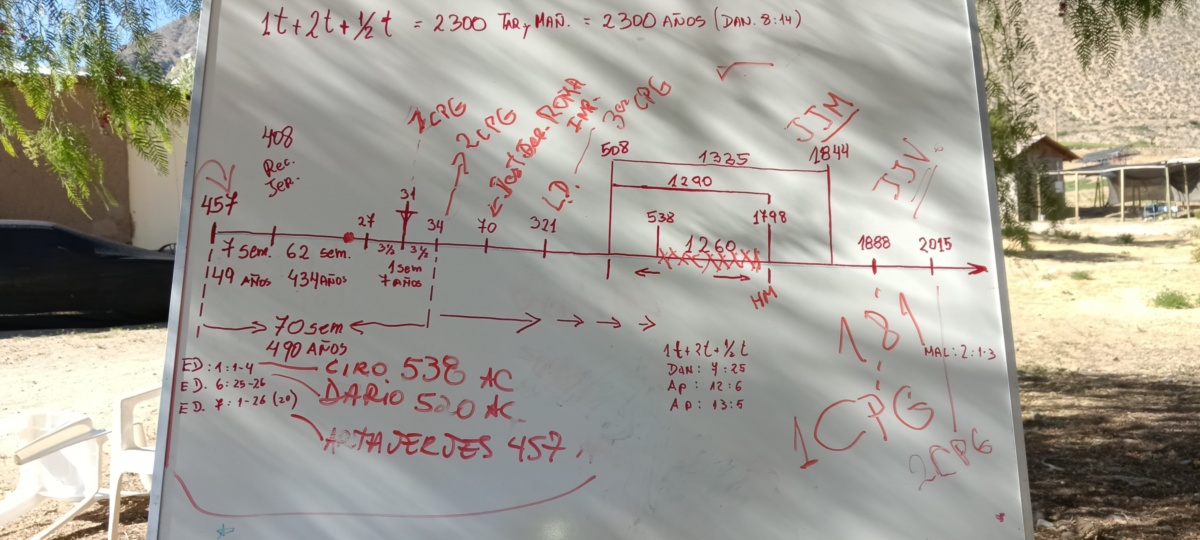 1t+2t+½t = 2300 TAR y MAÑ. = 2300 AÑOS (DAN. 8:14)
1CPG
2CPG
JEST DER. ROMA
IMP.
3er CPG
JJM
JJV
408
Rec.
Jer.
457
27
31
34
70
321
L.D.
508
1335
1844
1290
538
1798
1260
1888
2015
7 sem.
62 sem.
3½
3½
49 AÑOS
434 AÑOS
1 sem
7 AÑOS
HM
70 sem
490 AÑOS
ED: 1:1-4
CIRO 538 AC
ED. 6:25-26
DARIO 520 AC
ED. 7:1-26 (20)
ARTAJERJES 457
1t+2t+½t
DAN: 7:25
AP: 12:6
AP: 13:5
1
8
9
MAL: 2:1-3
1CPG
2CPG